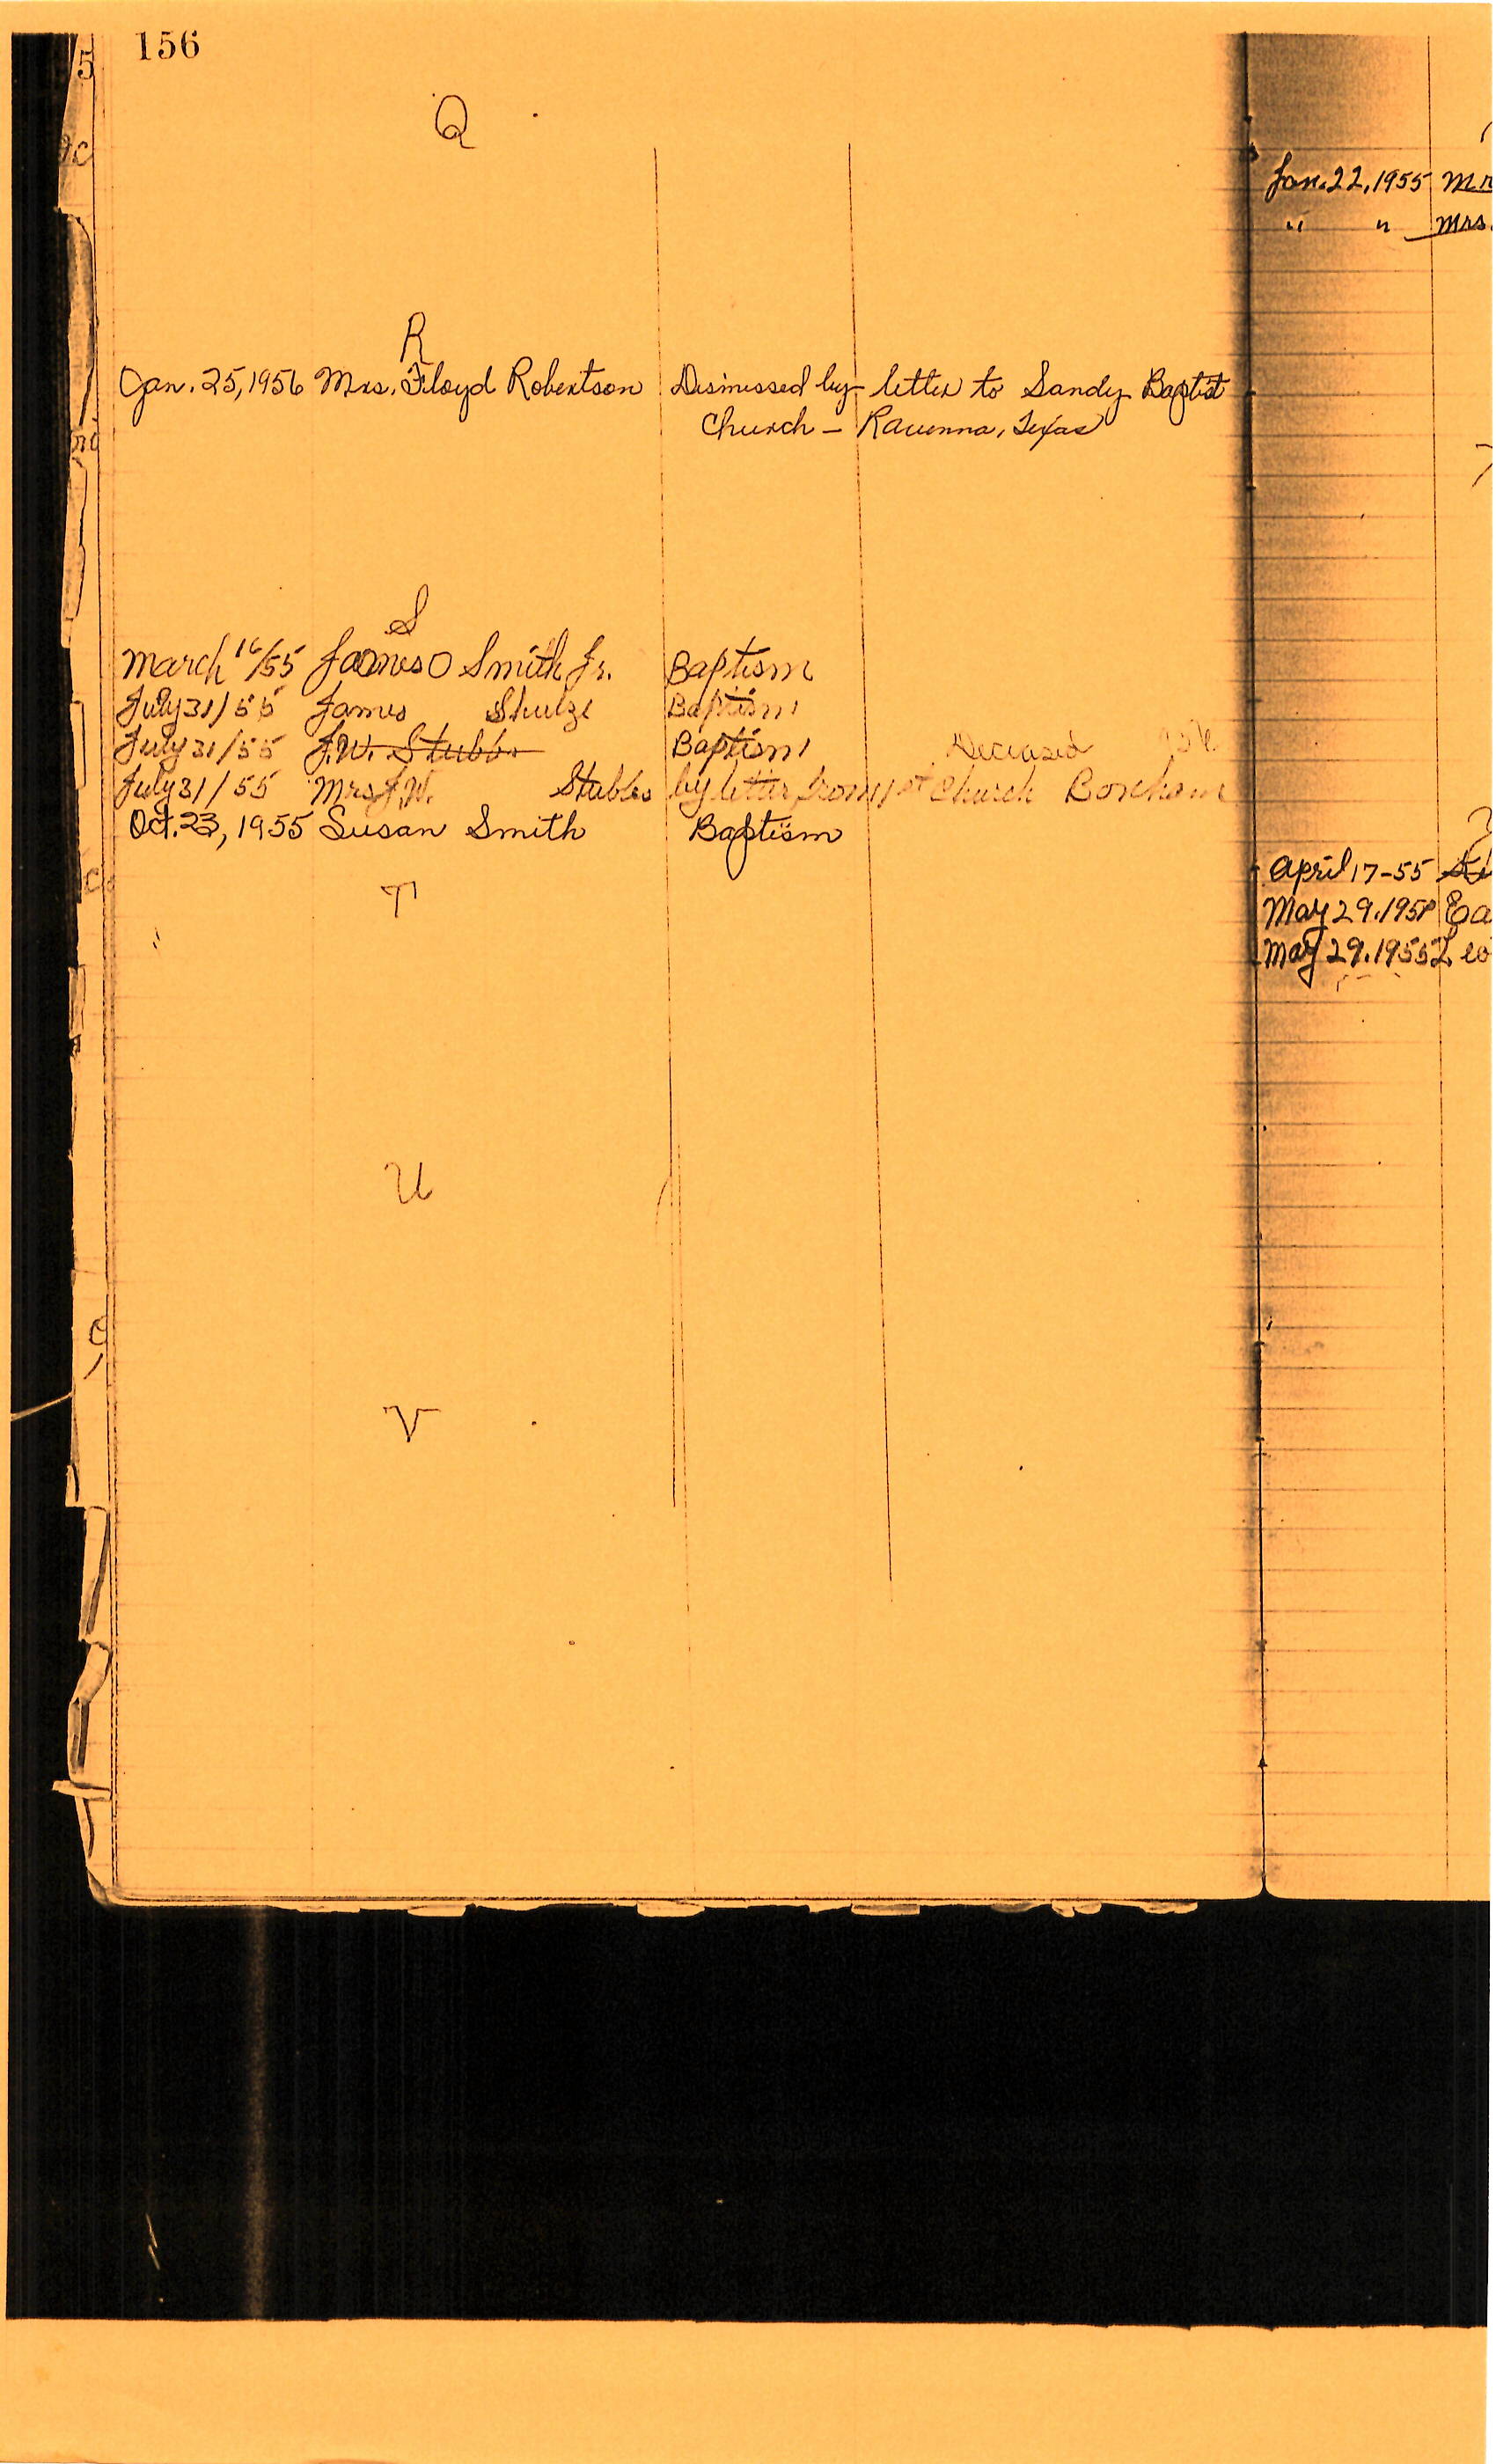 156
Q
R
Jan. 25, 1956 Mrs. Floyd Robertson Dismissed by letter to Sandy Baptist
Church - Ravenna, Texas
S
March 16/55 James O Smith Jr. Baptism
July 31/55 James Shulze Baptism
July 31/55 J.W. Stubbs Baptism Deceased
July 31/55 Mrs J.W. Stubbs by letter from 1st Church Bonham
Oct. 23, 1955 Susan Smith Baptism
T
U
V
Jan. 22, 1955
" " Mrs.
April 17-55
May 29. 195
May 29. 1955